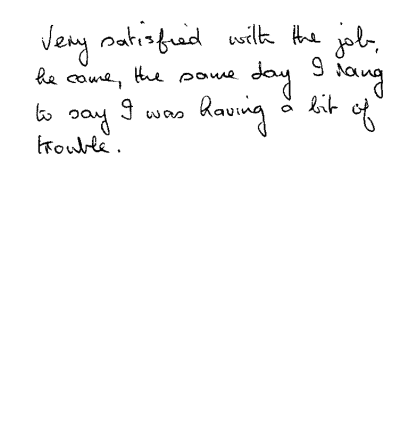 Very satisfied with the job,
he came, the same day I rang
to say I was having a bit of
trouble.